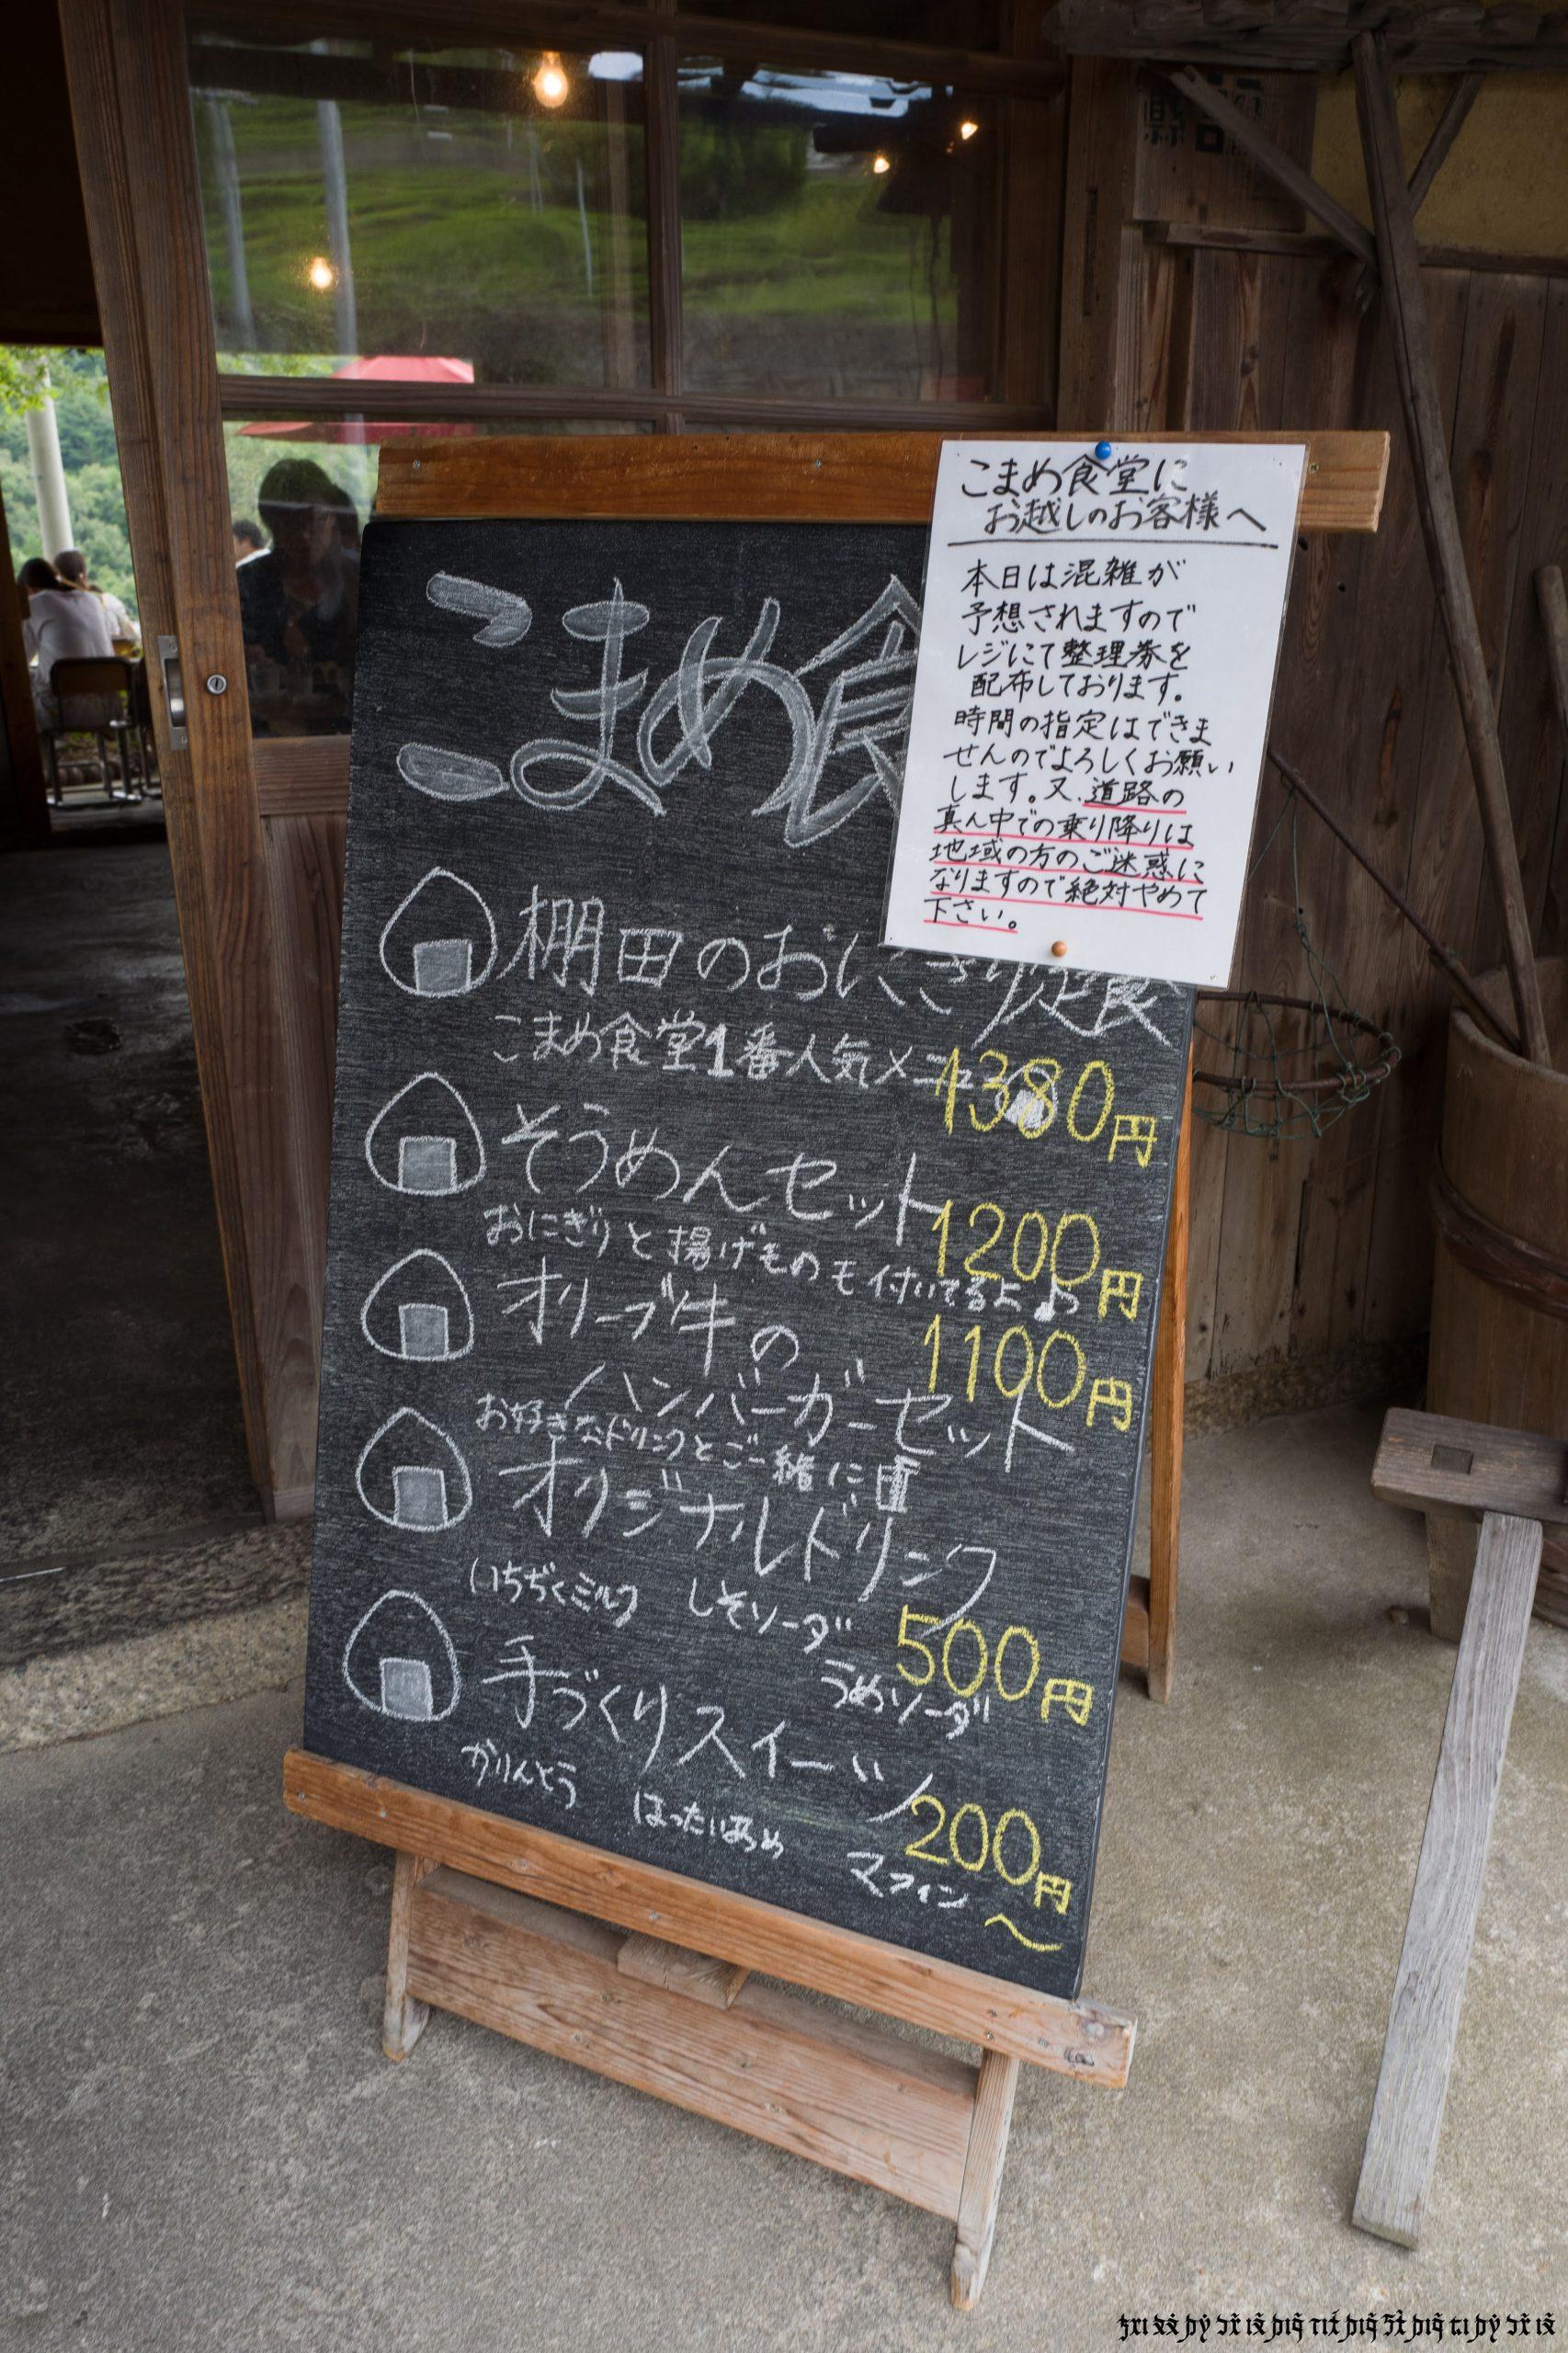 こまめ食堂に
お越しのお客様へ
本日は混雑が
予想されますので
レジにて整理券を
配布しております。
時間の指定はできま
せんのでよろしくお願い
します。又、道路の
真ん中での乗り降りは
地域の方のご迷惑に
なりますので絶対やめて
下さい。
こまめ食
棚田のおにぎり定食
こまめ食堂1番人気メニュー
1380円
そうめんセット
1200円
おにぎりと揚げものも付いてるよ♪
オリーブ牛の
1100円
ハンバーガーセット
お好きなドリンクとご一緒に
オリジナルドリンク
いちぢくミルク しそソーダ
500円
うめソーダ
手づくりスイーツ
200円～
かりんとう はったいあめ マフィン